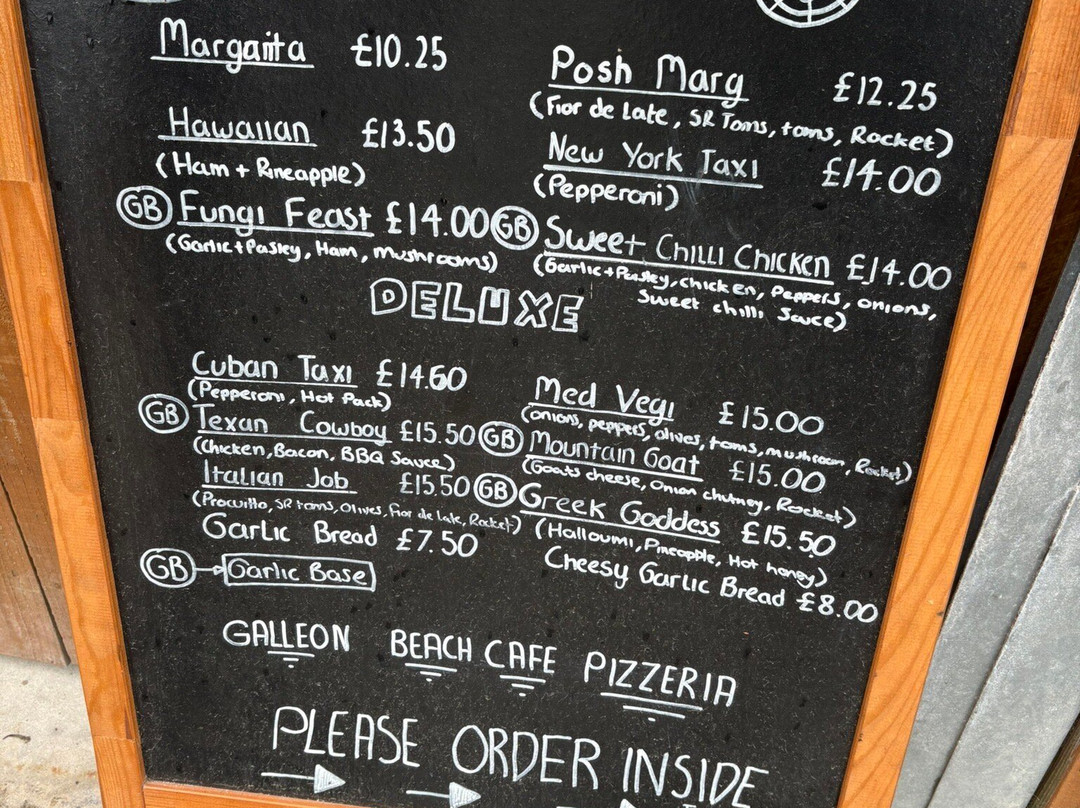 Margarita £10.25
Posh Marg £12.25
(Fior de Late, SR Toms, toms, Rocket)
Hawaiian £13.50
(Ham + Pineapple)
New York Taxi £14.00
(Pepperoni)
GB Fungi Feast £14.00
(Garlic + Pasley, Ham, mushrooms)
GB Sweet Chilli Chicken £14.00
(Garlic + Pasley, chicken, Peppers, onions,
Sweet chilli Sauce)
DELUXE
Cuban Taxi £14.60
(Pepperoni, Hot Pack)
Med Vegi £15.00
(onions, peppers, olives, toms, mushroom, Rocket)
GB Texan Cowboy £15.50
(Chicken, Bacon, BBQ Sauce)
GB Mountain Goat £15.00
(Goats cheese, Onion chutney, Rocket)
Italian Job £15.50
(Procuitto, SR toms, Olives, Fior de late, Rocket)
GB Greek Goddess £15.50
(Halloumi, Pineapple, Hot honey)
Garlic Bread £7.50
Cheesy Garlic Bread £8.00
GB → Garlic Base
GALLEON BEACH CAFE PIZZERIA
PLEASE ORDER INSIDE